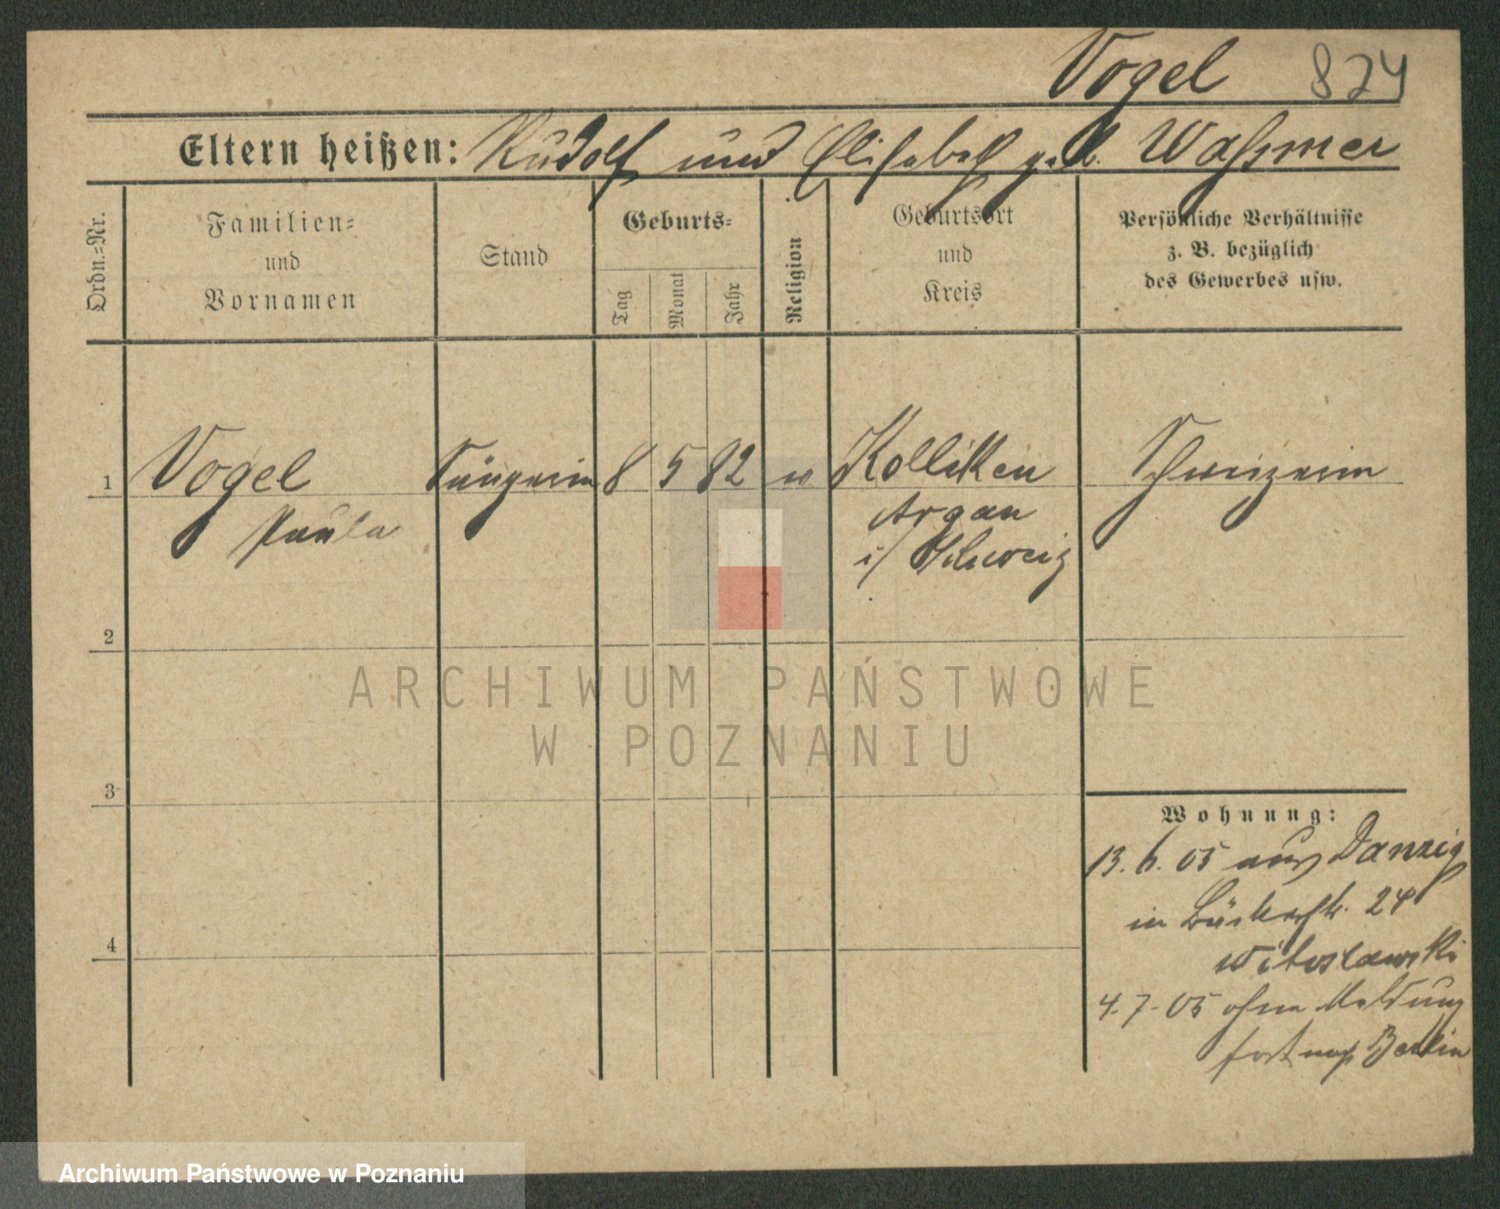 Vogel 824
Eltern heißen: Rudolf und Elisabeth geb. Waßmer
Ordn.=Nr.
Familien=
und
Vornamen
Stand
Geburts=
Tag
Monat
Jahr
Religion
Geburtsort
und
Kreis
Persönliche Verhältnisse
z. B. bezüglich
des Gewerbes usw.
1 Vogel Sängerin 8 5 82 Kolliken Schweizerin
Paula
Argau
i/ Schweiz
2
3
4
Wohnung:
13.6.05 aus Danzig
in Bäckerstr. 24
Witoslawski
4.7.05 ohne Meldung
fort nach Berlin
ARCHIWUM PAŃSTWOWE
W POZNANIU
Archiwum Państwowe w Poznaniu